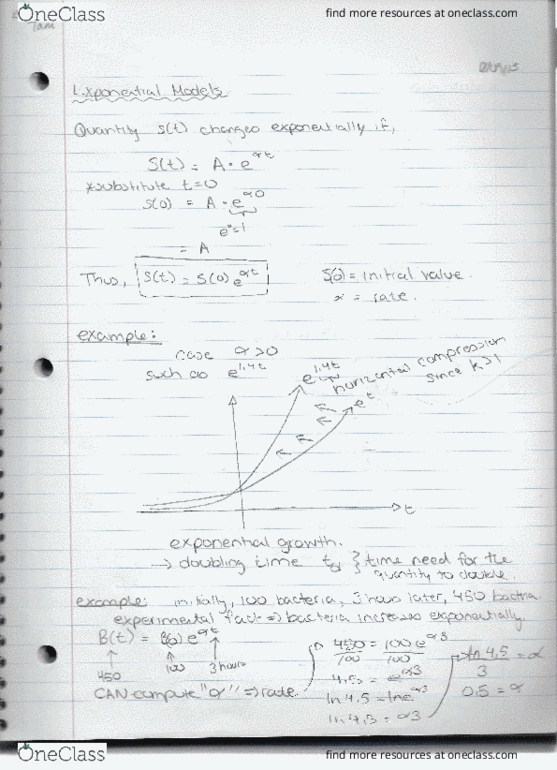 OneClass
find more resources at oneclass.com
Tam
Exponential Models
Quantity S(t) changes exponentially if,
S(t) = A · e^αt
*substitute t=0
S(0) = A · e^α0
e^0=1
= A
Thus, S(t) = S(0) e^αt
S(0) = initial value.
α = rate.
example:
case α>0
such as e^1.4t
e^1.4t
horizontal compression
since k>1
e^t
t
exponential growth.
→ doubling time t_d } time need for the
quantity to double.
example: initially, 100 bacteria, 3 hours later, 450 bactria
experimental fact => bacteria increases exponentially.
B(t) = B(0) e^αt
450
100
3 hours
CAN compute "α" => rate
450 = 100 e^α3
100 100
4.5 = e^α3
ln 4.5 = ln e^α3
ln 4.5 = α3
ln 4.5 = α
3
0.5 = α
OneClass
find more resources at oneclass.com